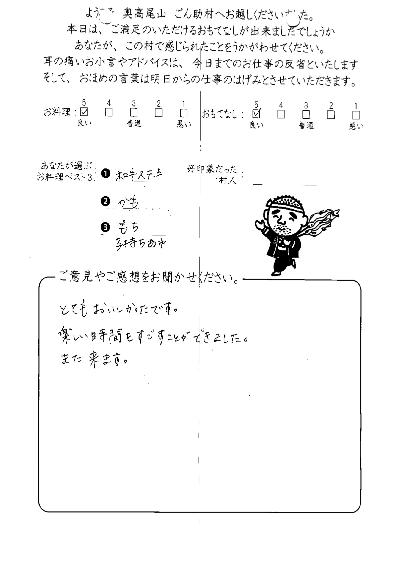 ようこそ 奥高尾山 ごん助村へお越しくださいました。
本日は、ご満足のいただけるおもてなしが出来ましたでしょうか
あなたが、この村で感じられたことをうかがわせてください。
耳の痛いお小言やアドバイスは、今日までのお仕事の反省といたします
そして、おほめの言葉は明日からの仕事のはげみとさせていただきます。
お料理: 5 4 3 2 1 おもてなし: 5 4 3 2 1
良い 普通 悪い 良い 普通 悪い
あなたが選ぶ、
お料理ベスト3.
❶ 和牛ステーキ
❷
❸ もち
子持ちあゆ
好印象だった
村人
ご意見やご感想をお聞かせください。
とてもおいしかたです。
楽しい時間をすごすことができました。
また来ます。